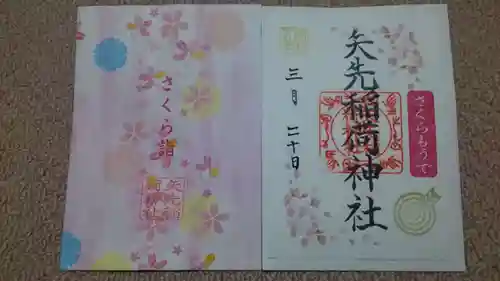 さくら詣
矢先稲
荷神社
矢先稲荷神社
さくらもうで
三月 二十日